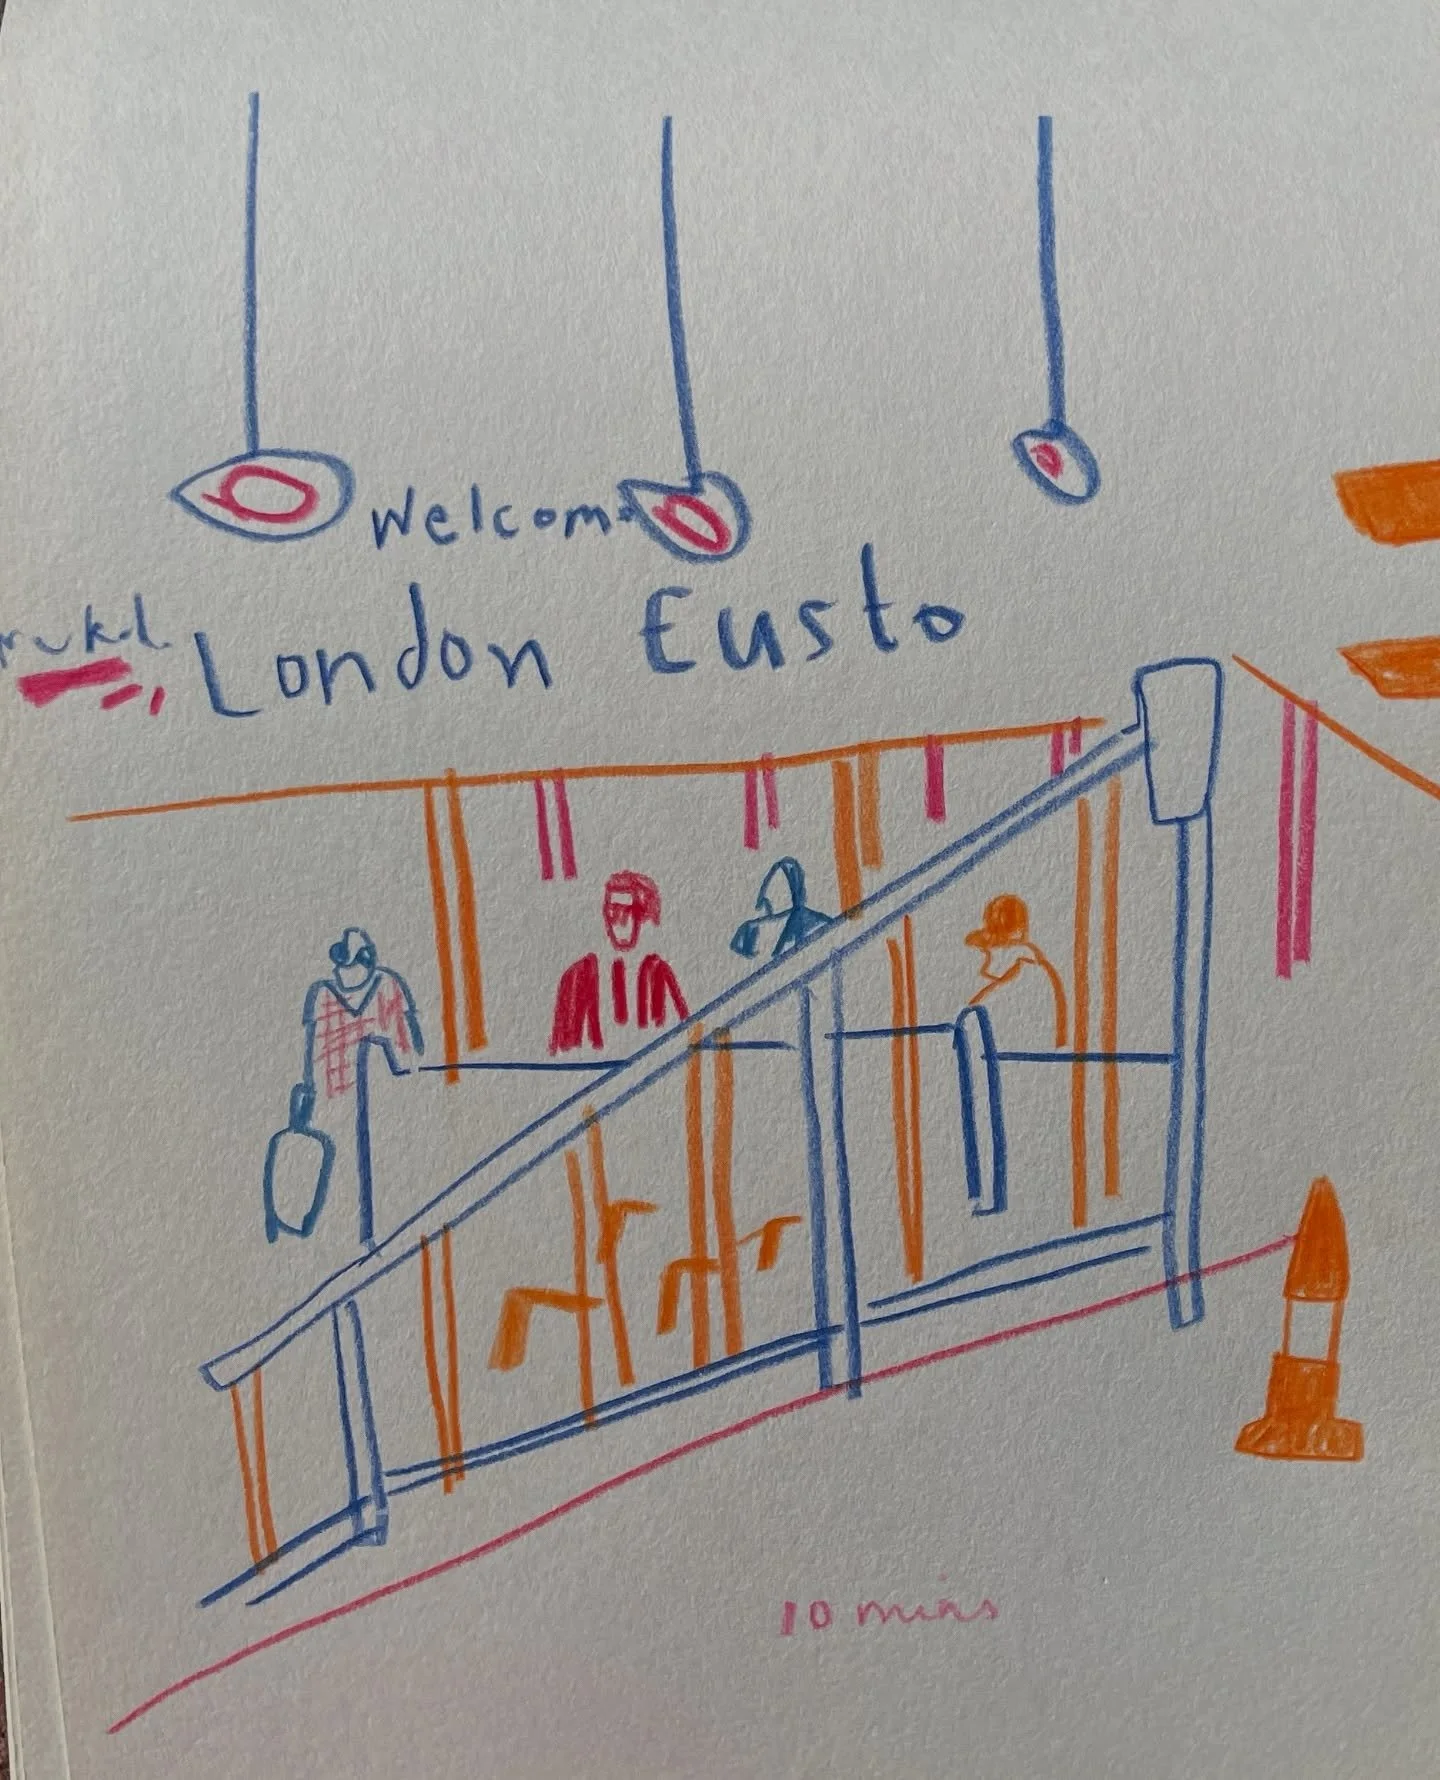 Welcome
London Eusto
10 mins